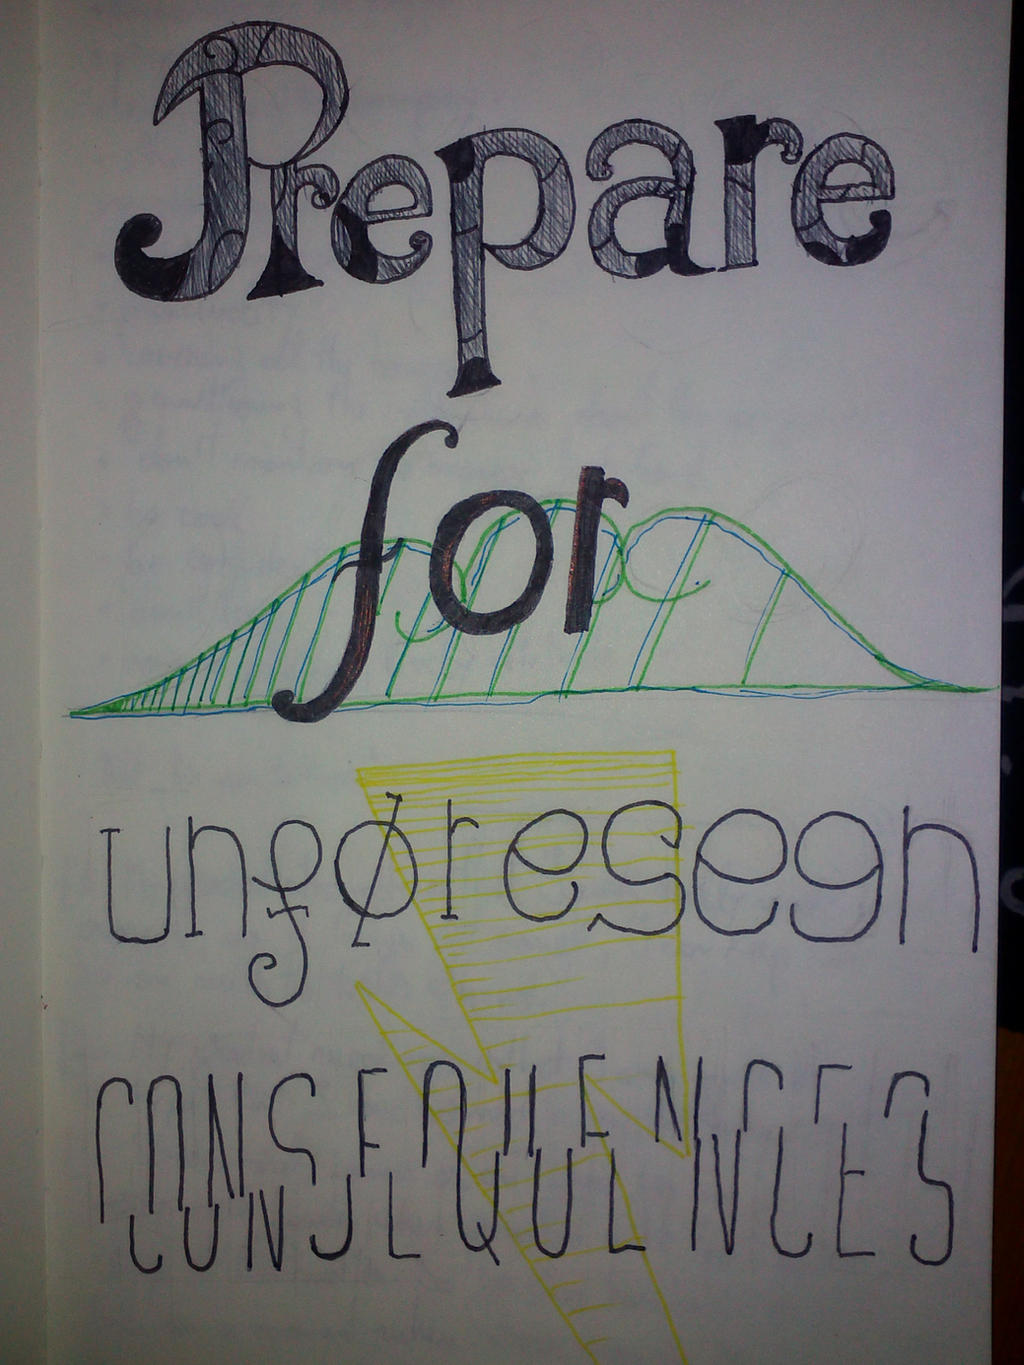 Prepare
for
unføreseen
CONSEQUENCES